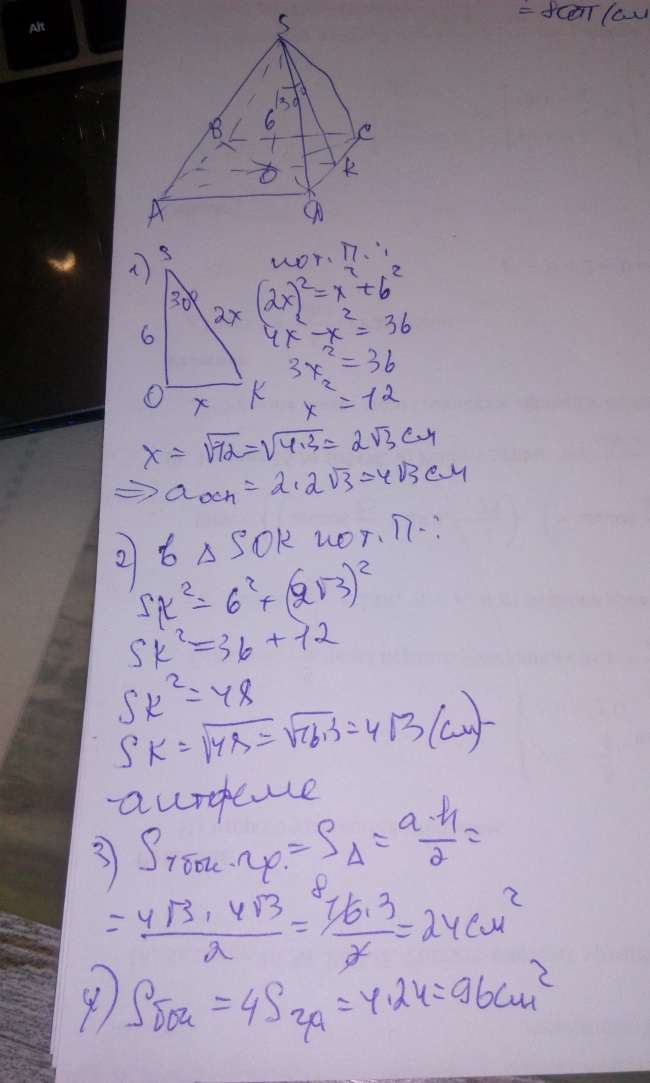 Alt
S
30°
6
B
C
O
K
A
D
1)
S
30°
6
2x
O
x
K
по т. П.:
(2x)² = x² + 6²
4x² - x² = 36
3x² = 36
x² = 12
x = √12 = √4·3 = 2√3 см
⇒ a осн = 2·2√3 = 4√3 см
2) в △ SOK по т. П.:
SK² = 6² + (2√3)²
SK² = 36 + 12
SK² = 48
SK = √48 = √16·3 = 4√3 (см) -
- апофема
3) S 1 бок. гр. = S△ = a·h/2 =
= 4√3 · 4√3/2 = 8 16·3/2 = 24 см²
4) Sбок = 4Sгр = 4·24 = 96 см²